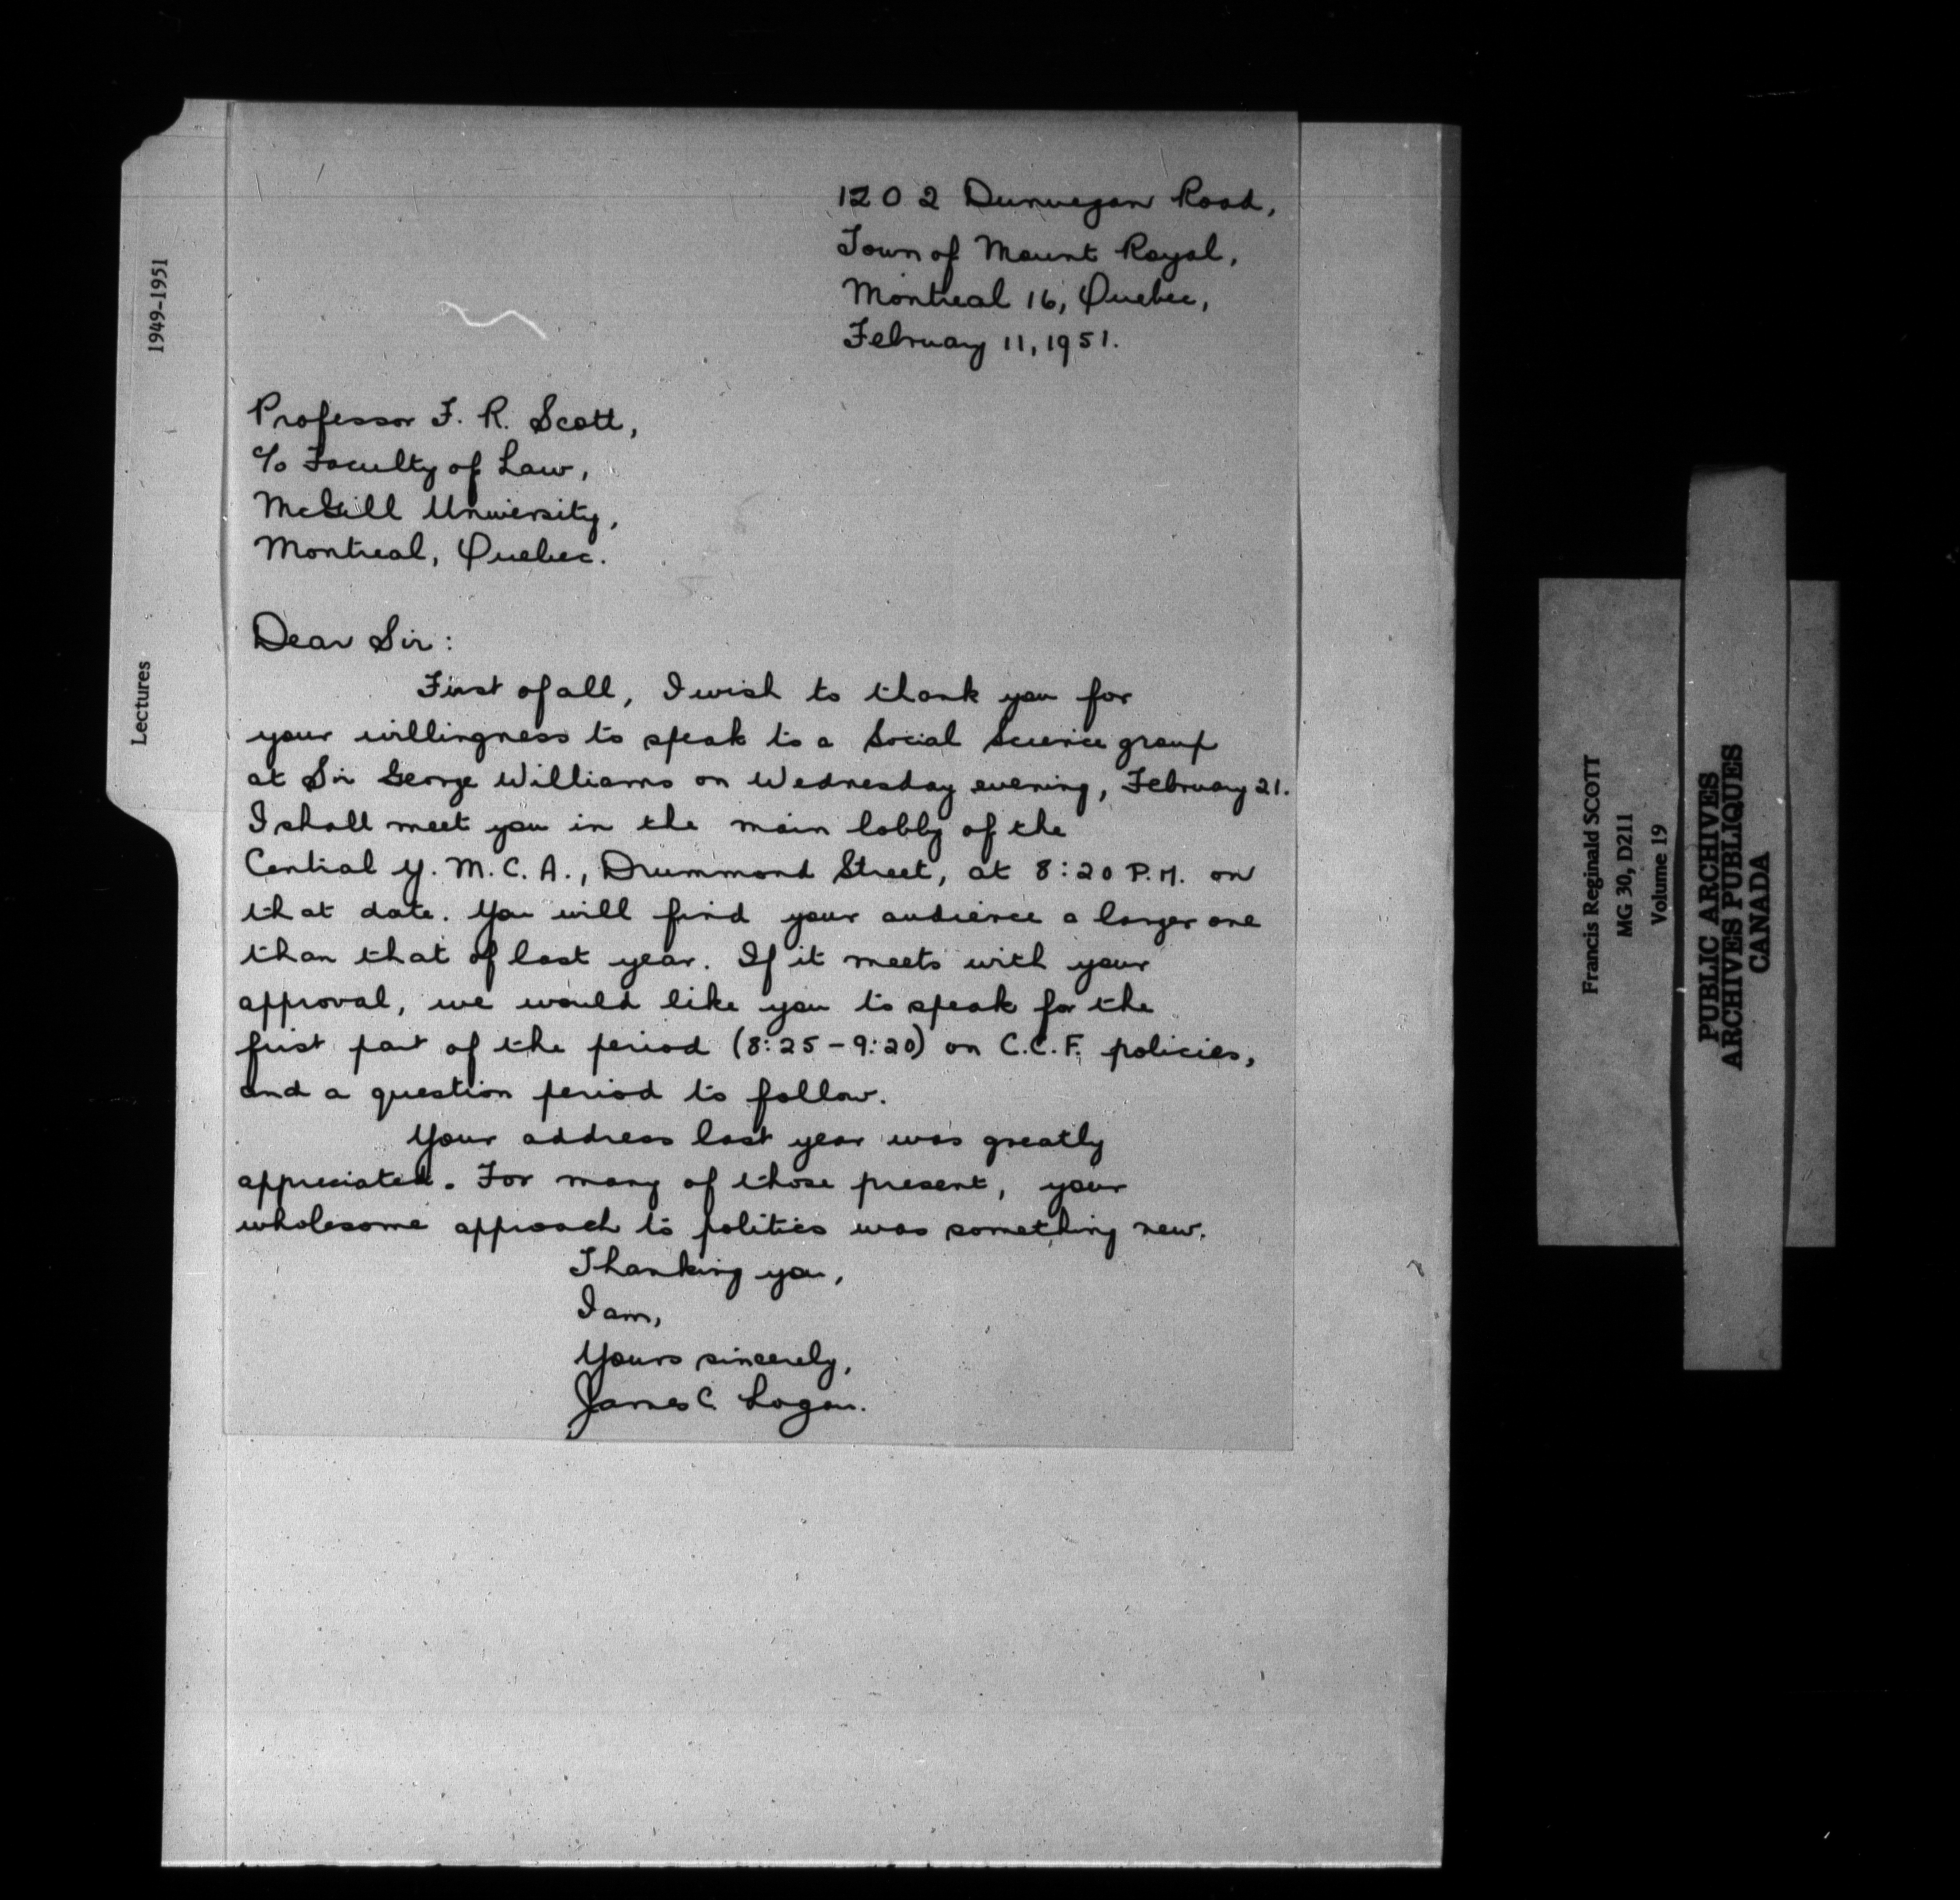 1202 Dunvegan Road,
Town of Mount Royal,
Montreal 16, Quebec,
February 11, 1951.
Professor F. R. Scott,
c/o Faculty of Law,
McGill University,
Montreal, Quebec.
Dear Sir:
First of all, I wish to thank you for
your willingness to speak to a Social Science group
at Sir George Williams on Wednesday evening, February 21.
I shall meet you in the main lobby of the
Central Y. M. C. A., Drummond Street, at 8:20 P.M. on
that date. You will find your audience a larger one
than that of last year. If it meets with your
approval, we would like you to speak for the
first part of the period (8:25-9:20) on C.C.F. policies,
and a question period to follow.
Your address last year was greatly
appreciated. For many of those present, your
wholesome approach to politics was something new.
Thanking you,
I am,
Yours sincerely,
James C. Logan.
Lectures 1949-1951
Francis Reginald SCOTT
MG 30, D211
Volume 19
PUBLIC ARCHIVES
ARCHIVES PUBLIQUES
CANADA